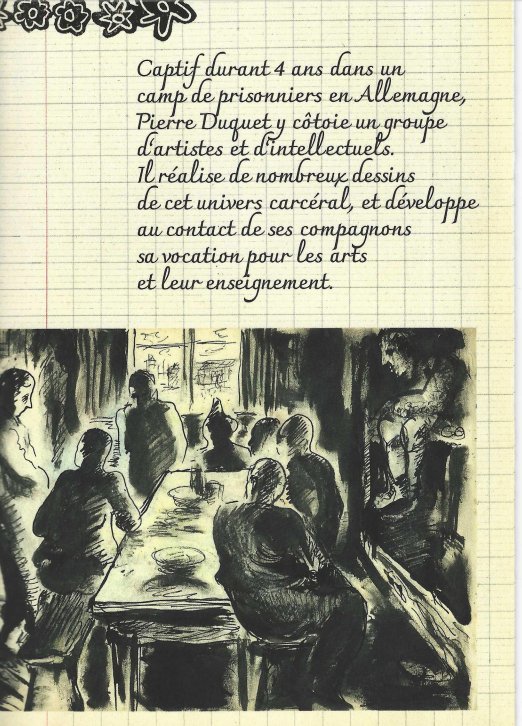 Captif durant 4 ans dans un
camp de prisonniers en Allemagne,
Pierre Duquet y côtoie un groupe
d'artistes et d'intellectuels.
Il réalise de nombreux dessins
de cet univers carcéral, et développe
au contact de ses compagnons
sa vocation pour les arts
et leur enseignement.